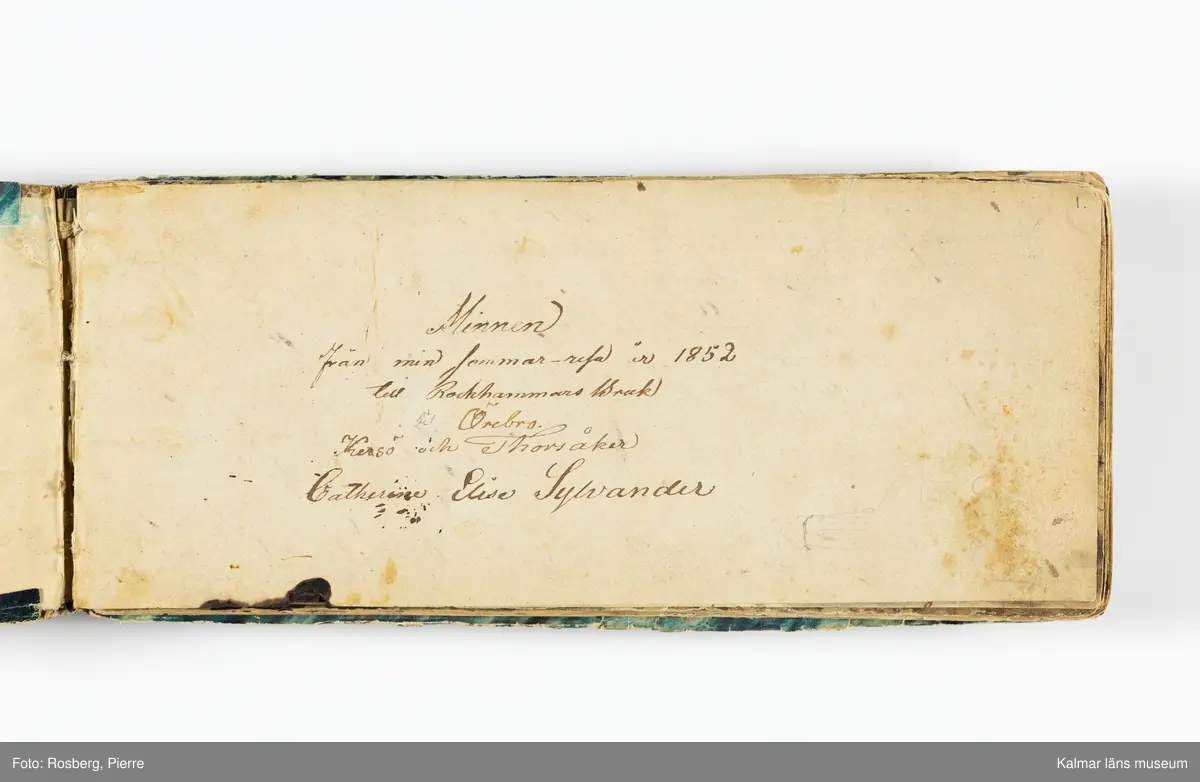 1
Minnen
från min sommar-resa år 1852
till Rockhammars Bruk
Örebro.
Kersö och Thorsåker
Catherine Elise Sylvander
Foto: Rosberg, Pierre
Kalmar läns museum